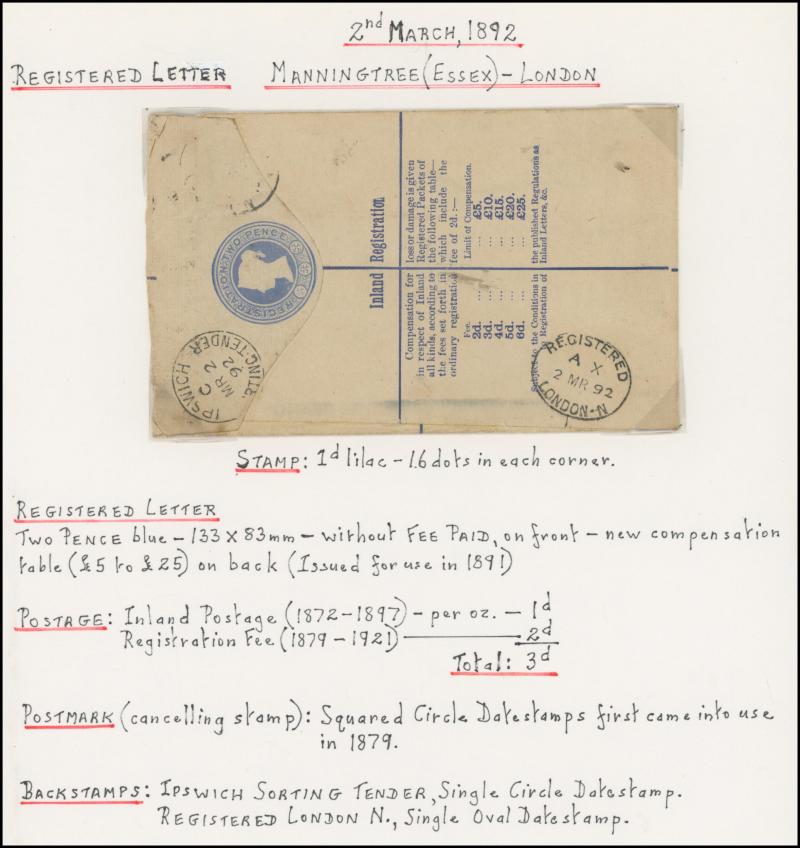 2nd MARCH, 1892
REGISTERED LETTER MANNINGTREE (ESSEX) – LONDON
REGISTRATION TWO PENCE
IPSWICH SORTING-TENDER
C
MR 2
92
Inland Registration
Compensation for loss or damage is given
in respect of Inland Registered Packets of
all kinds, according to the following table—
the fees set forth in which include the
ordinary registration fee of 2d.:—
Fee. Limit of Compensation.
2d. ... ... £5.
3d. ... ... £10.
4d. ... ... £15.
5d. ... ... £20.
6d. ... ... £25.
Subject to the Conditions in the published Regulations as
Registration of Inland Letters, &c.
REGISTERED
A X
2 MR 92
LONDON-N
STAMP: 1d lilac – 16 dots in each corner.
REGISTERED LETTER
TWO PENCE blue – 133 x 83mm – without FEE PAID, on front – new compensation
table (£5 to £25) on back (Issued for use in 1891)
POSTAGE: Inland Postage (1872–1897) – per oz. – 1d
Registration Fee (1879–1921) 2d
Total: 3d
POSTMARK (cancelling stamp): Squared Circle Datestamps first came into use
in 1879.
BACKSTAMPS: IPSWICH SORTING TENDER, Single Circle Datestamp.
REGISTERED LONDON N., Single Oval Datestamp.